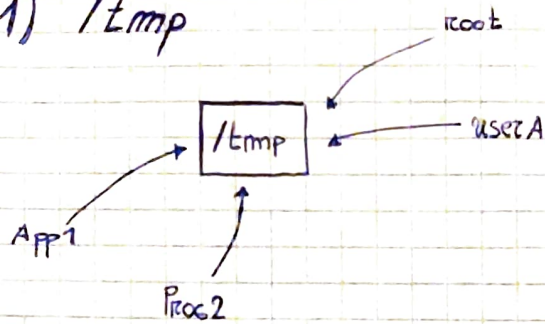 1) /tmp
root
/tmp
userA
App1
Proc2